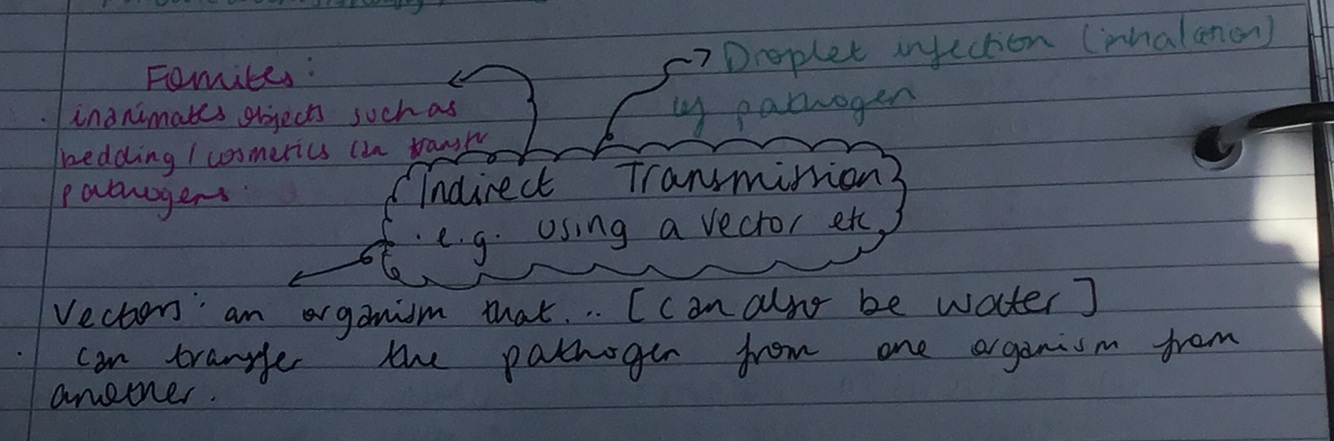 Fomites:
. inanimates objects such as
bedding / cosmetics can transfr
pathogens.
Droplet infection (inhalation)
of pathogen
Indirect Transmission
. e.g. using a vector etc.
Vectors: an organism that... [can also be water]
. can transfer the pathogen from one organism from
another.